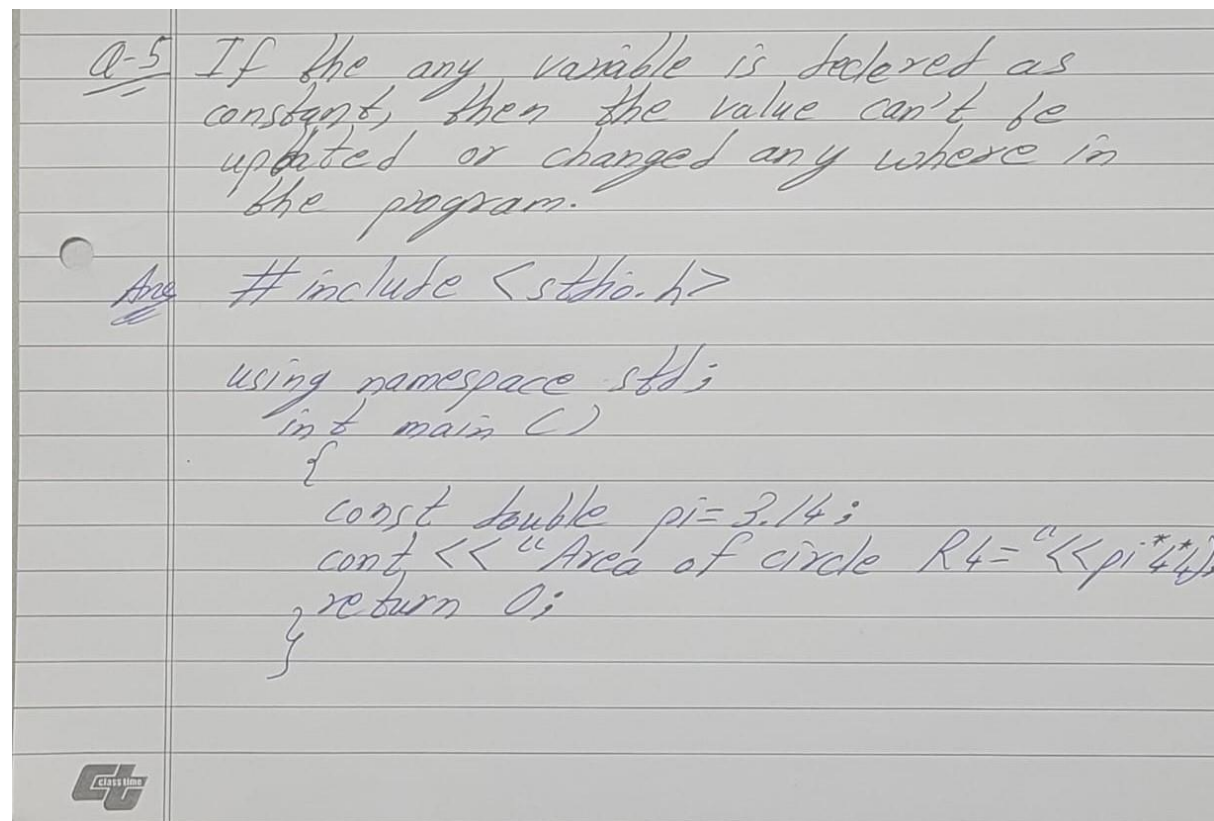 Q-5 If the any variable is declered as
constant, then the value can't be
updated or changed any where in
the program.
Ans # include <stdio.h>
using namespace std;
int main ()
{
const double pi = 3.14;
cout << "Area of circle R4= "<<pi*4*4);
return 0;
}
classtime